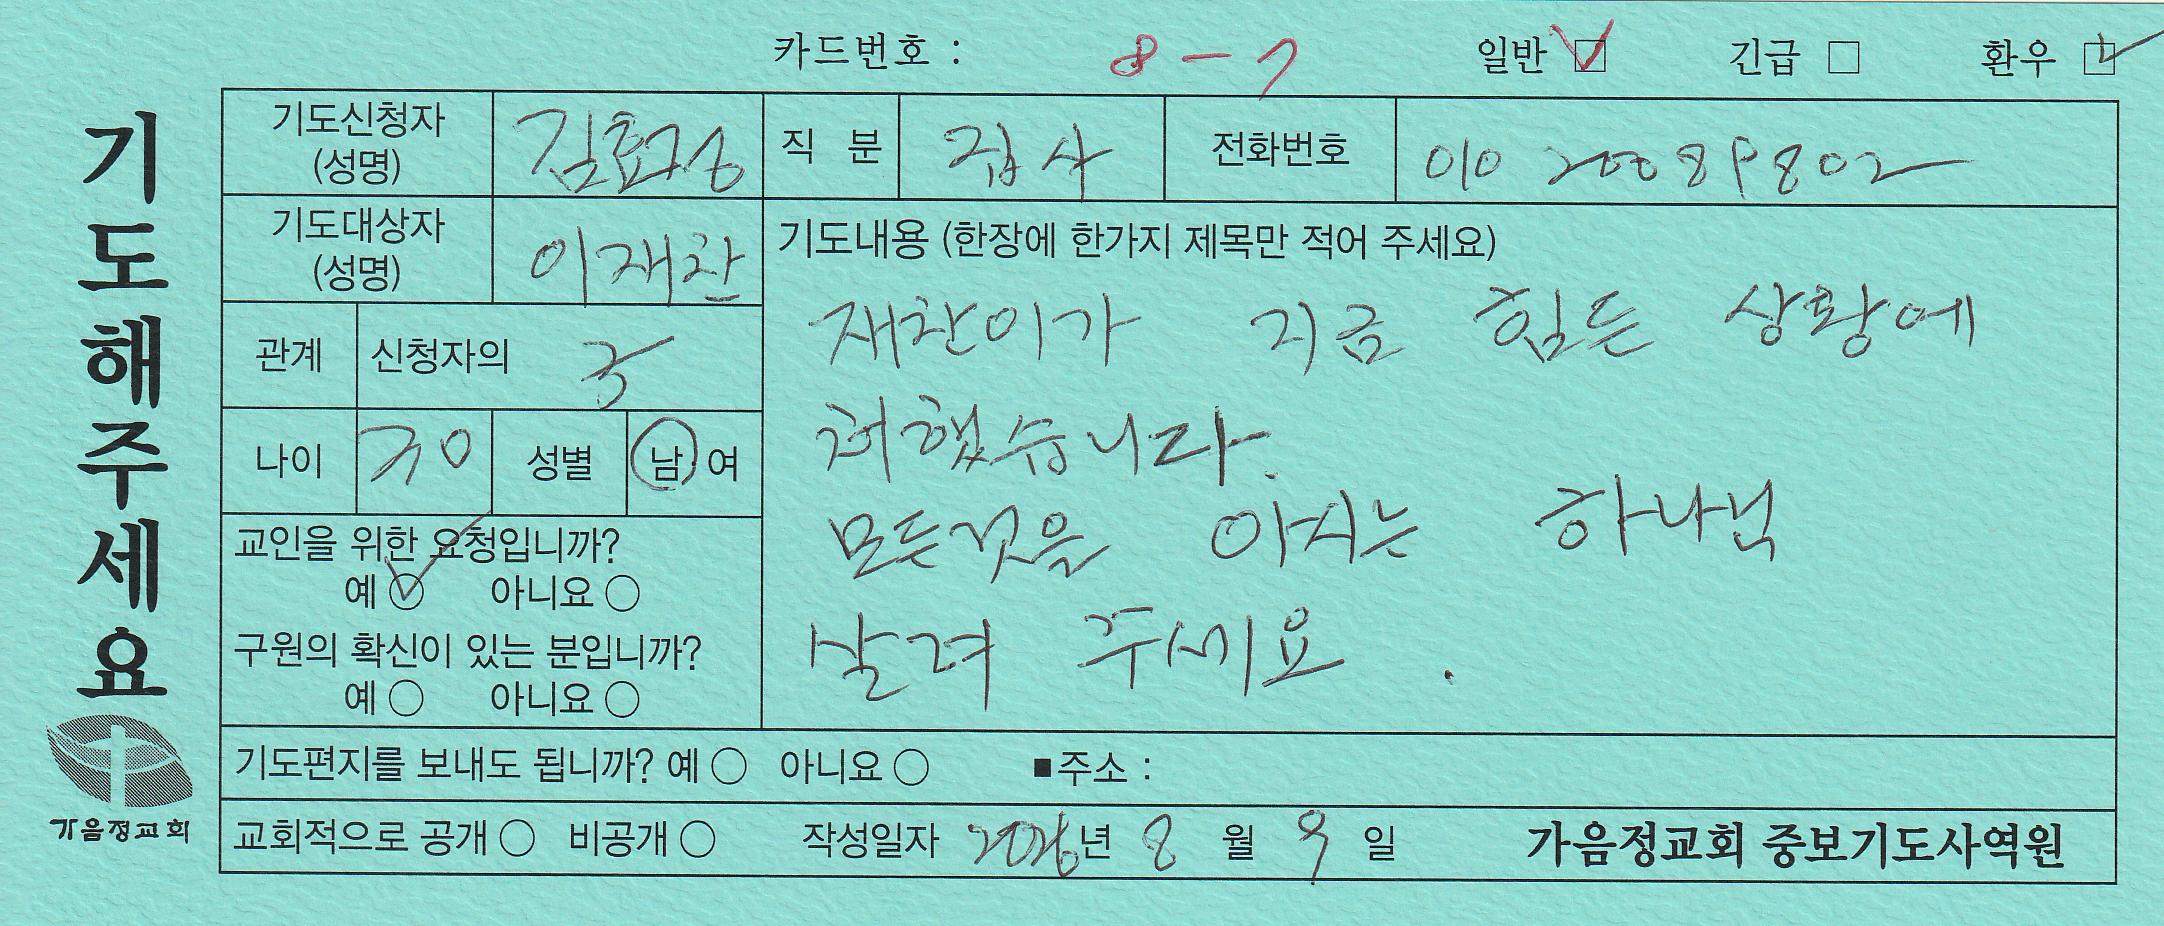 카드번호 : 8-7 일반 긴급 환우
기도해주세요
기도신청자 (성명) 김효정 직분 집사 전화번호 010 20089802
기도대상자 (성명) 이재찬
기도내용 (한장에 한가지 제목만 적어 주세요)
재찬이가 지금 힘든 상황에
처했습니다.
모든것을 아시는 하나님
살려 주세요.
관계 신청자의
나이 30 성별 남 여
교인을 위한 요청입니까?
예 아니요
구원의 확신이 있는 분입니까?
예 아니요
기도편지를 보내도 됩니까? 예 아니요 ■주소 :
교회적으로 공개 비공개 작성일자 2026년 8월 9일 가음정교회 중보기도사역원
가음정교회